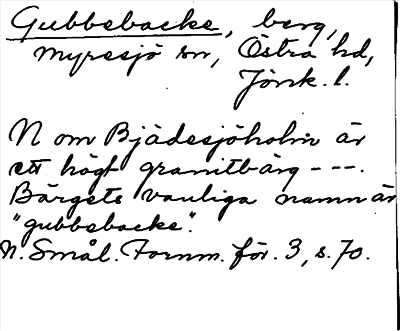 Gubbebacke, berg,
Myresjö sn, Östra hd,
Jönk. l.
N om Bjädesjöholm är
ett högt granitbärg ---.
Bärgets vanliga namn är
"gubbebacke".
N. Smål. Fornm. för. 3, s. 70.